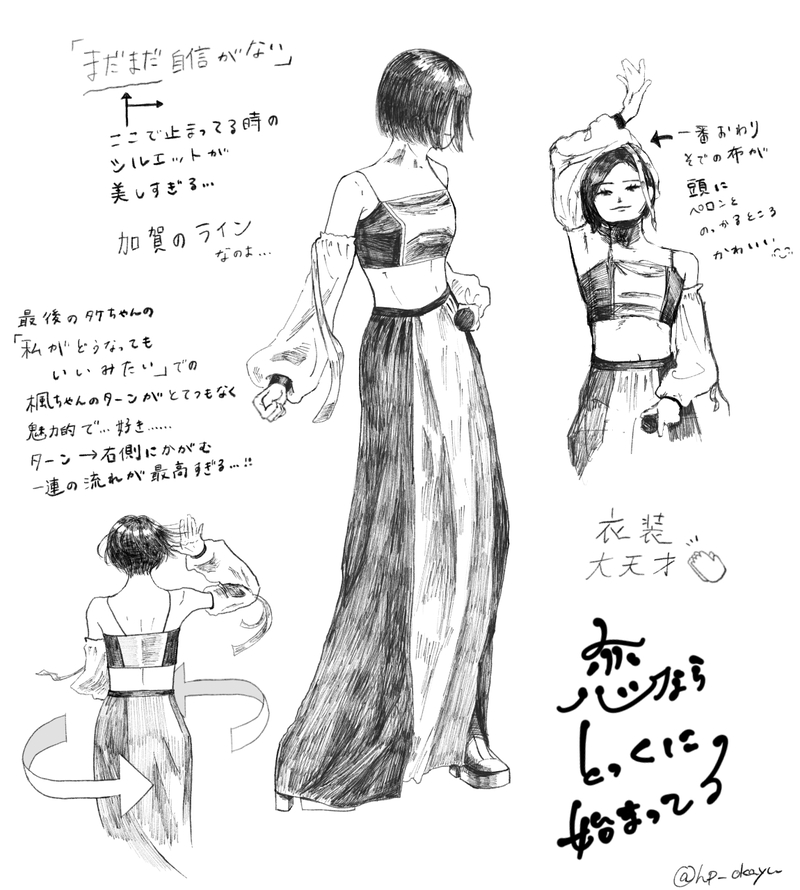 「まだまだ自信がない」
ここで止まってる時の
シルエットが
美しすぎる…
加賀のライン
なのよ…
一番おわり
そでの布が
頭に
ペロンと
のっかるところ
かわいい
最後のタケちゃんの
「私がどうなっても
いいみたい」での
楓ちゃんのターンがとてつもなく
魅力的で…好き……
ターン→右側にかがむ
一連の流れが最高すぎる…!!
衣装
大天才
恋なら
とっくに
始まってる
@hp_okayu